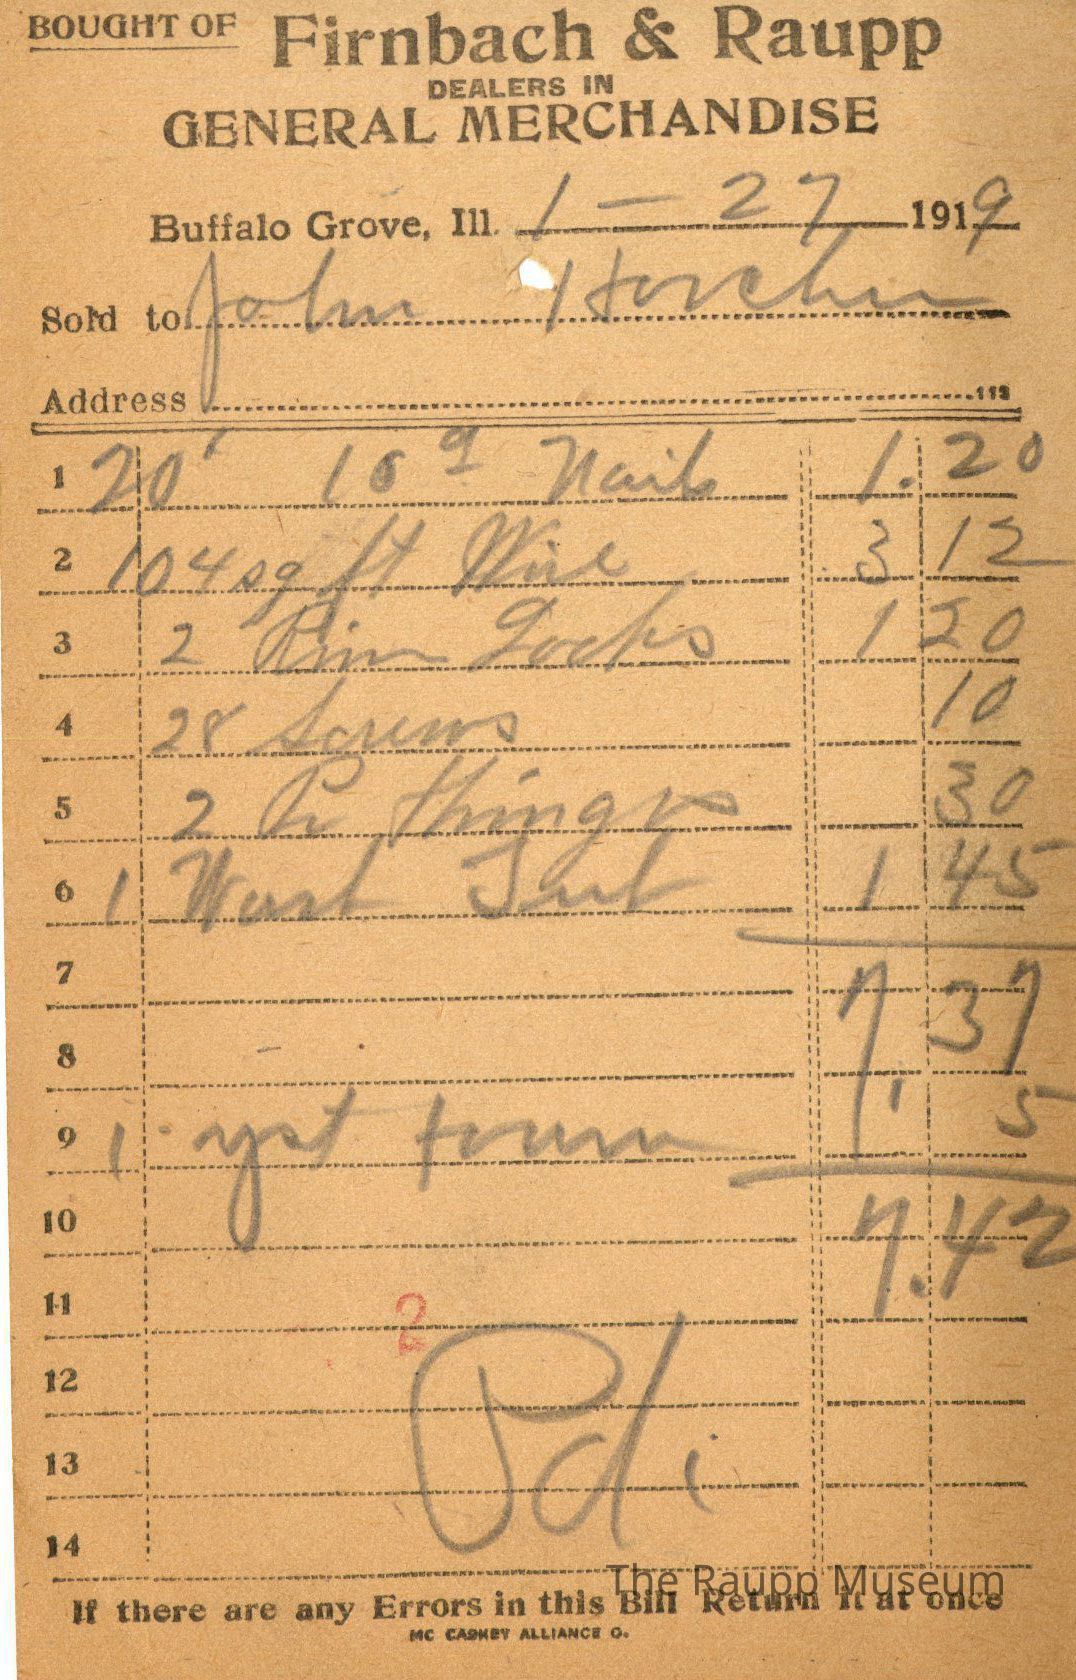 BOUGHT OF Firnbach & Raupp
DEALERS IN
GENERAL MERCHANDISE
Buffalo Grove, Ill. 1 - 27 1919
Sold to John Horcher
Address 113
1 20' 16 d Nails 1.20
2 104 sq ft Wire 3 12
3 2 Rim Locks 1 20
4 28 Screws 10
5 2 Pr Hinges 30
6 1 Wash Tub 1 45
7 7.37
8
9 1 yst 5
10 7.42
11 2
12
13 Pd
14
The Raupp Museum
If there are any Errors in this Bill Return it at once
MC CASKEY ALLIANCE O.